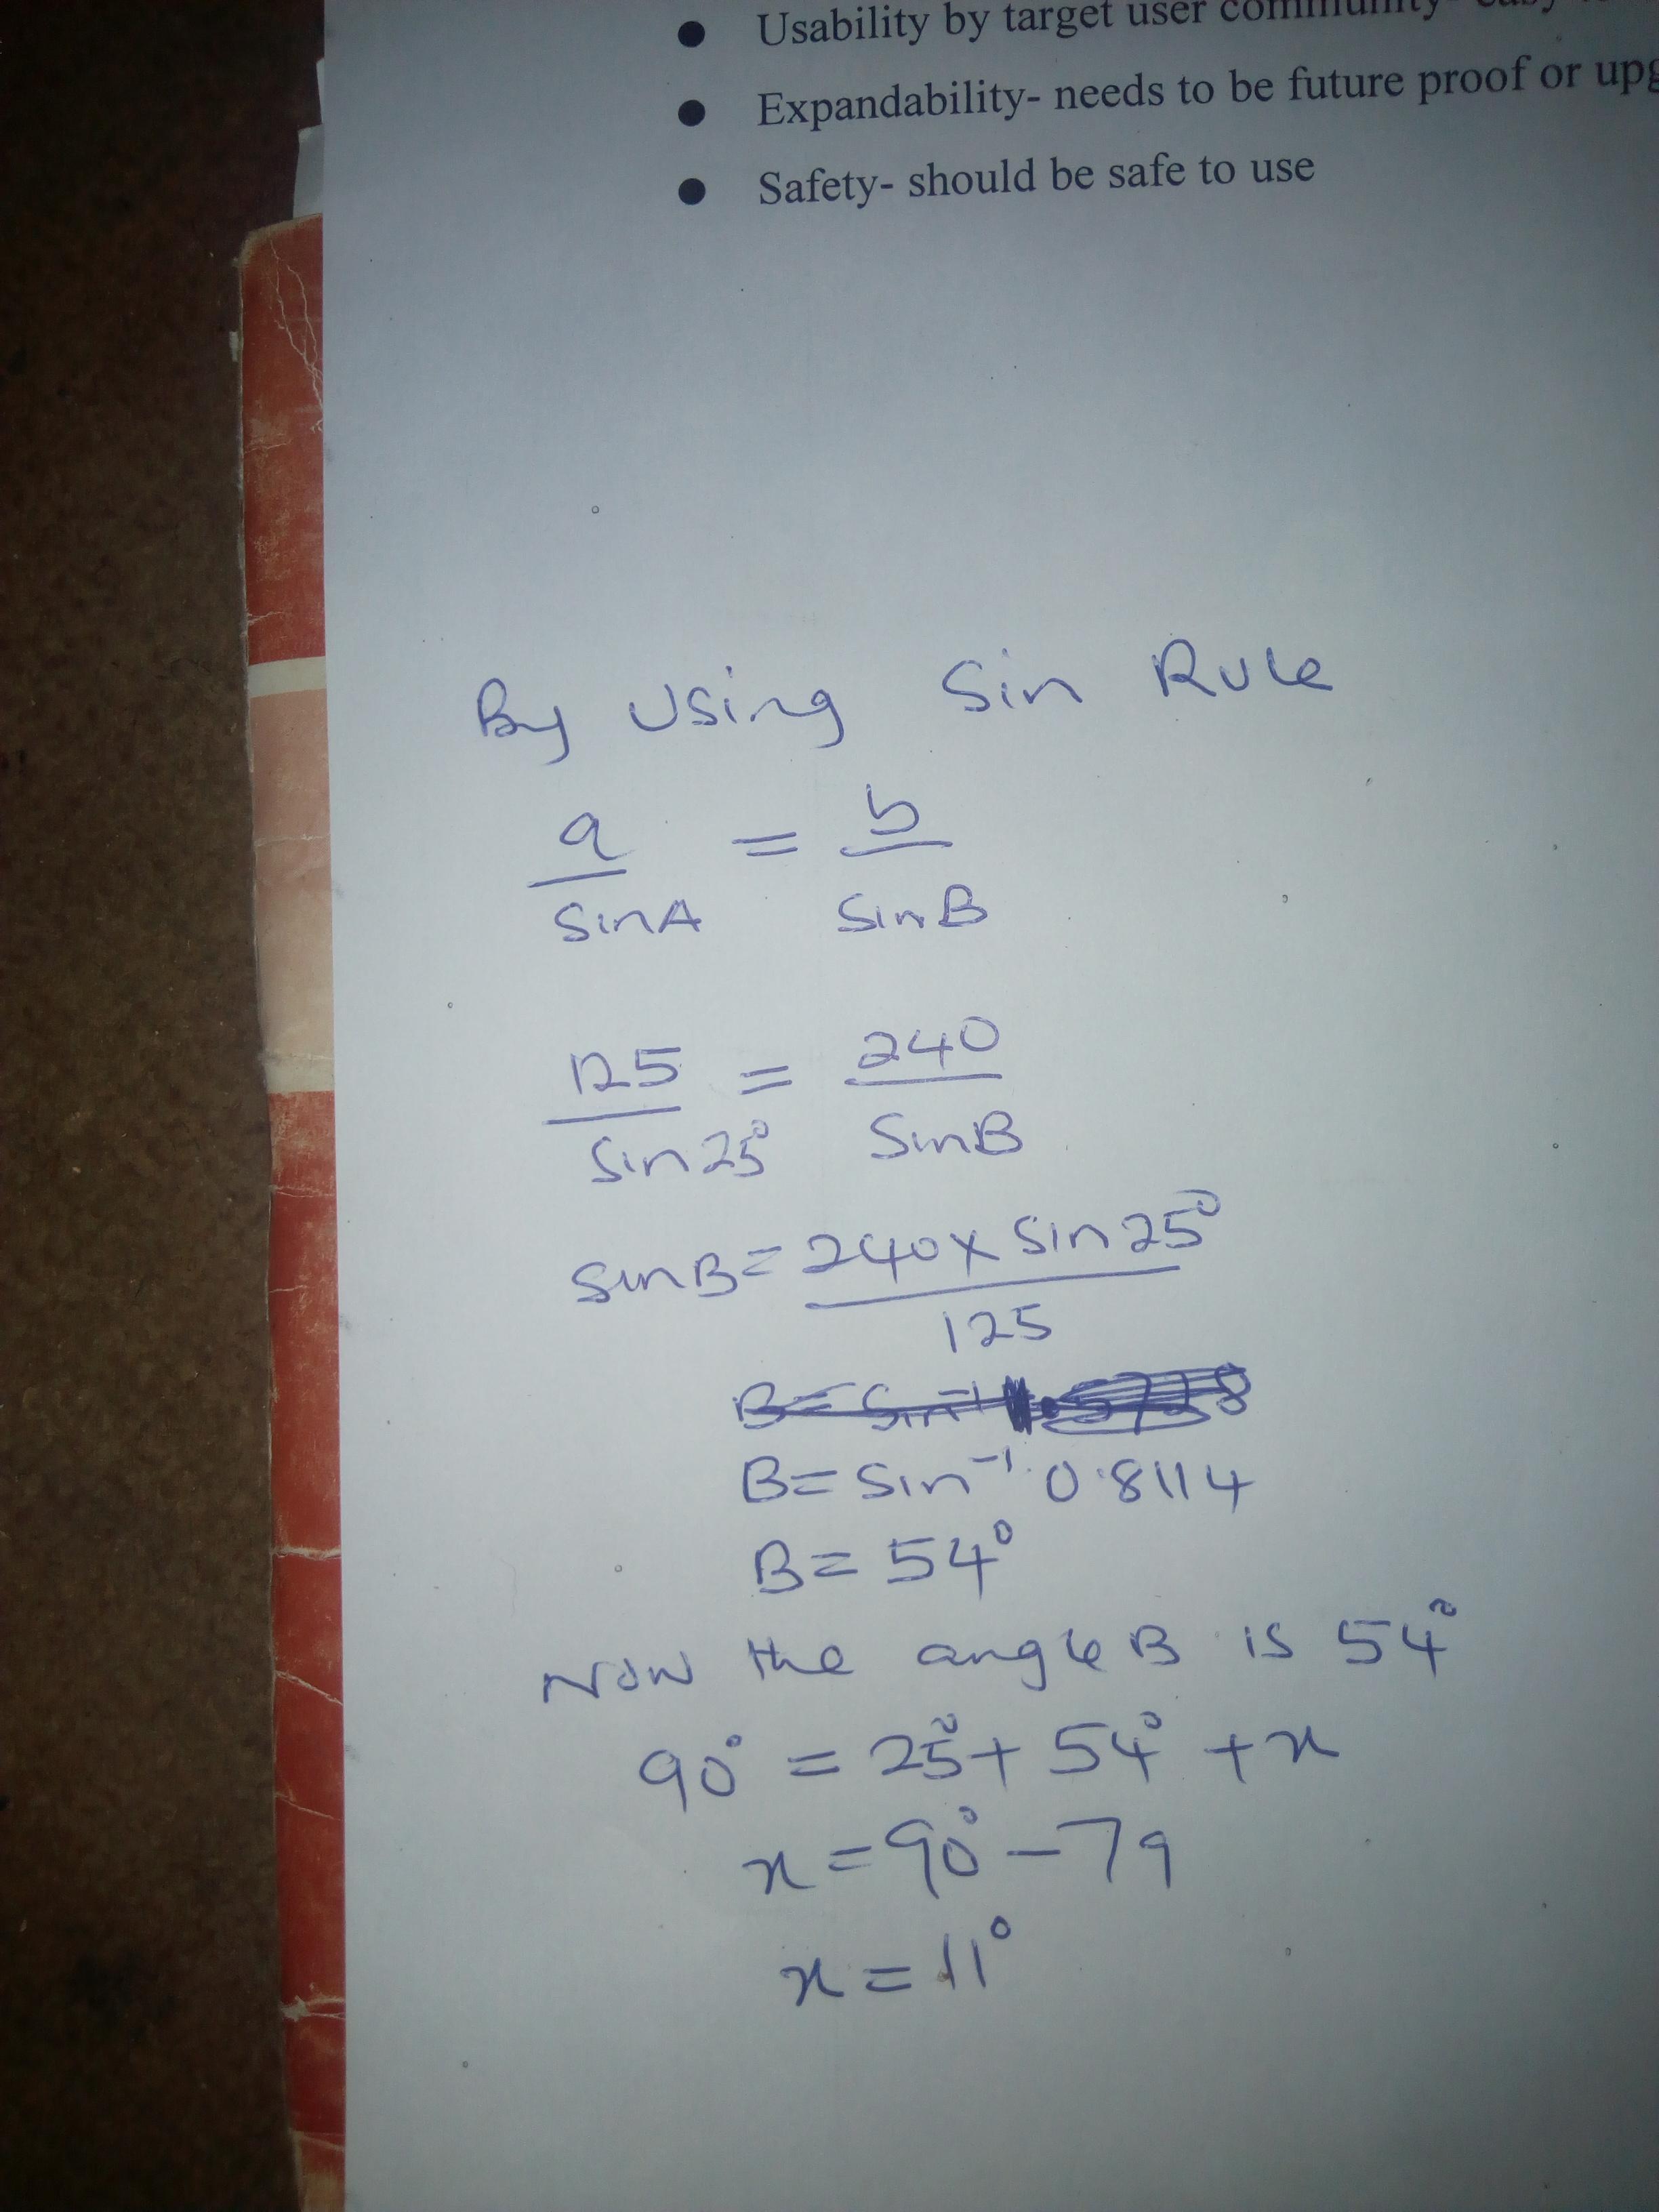 ● Usability by target user community- easy
● Expandability- needs to be future proof or upg
● Safety- should be safe to use
By Using Sin Rule
a/SinA = b/SinB
125/Sin25° = 240/SinB
SinB = 240 x Sin25°/125
B = Sin⁻¹ 0.8114
B = 54°
Now the angle B is 54°
90° = 25° + 54° + x
x = 90° - 79
x = 11°